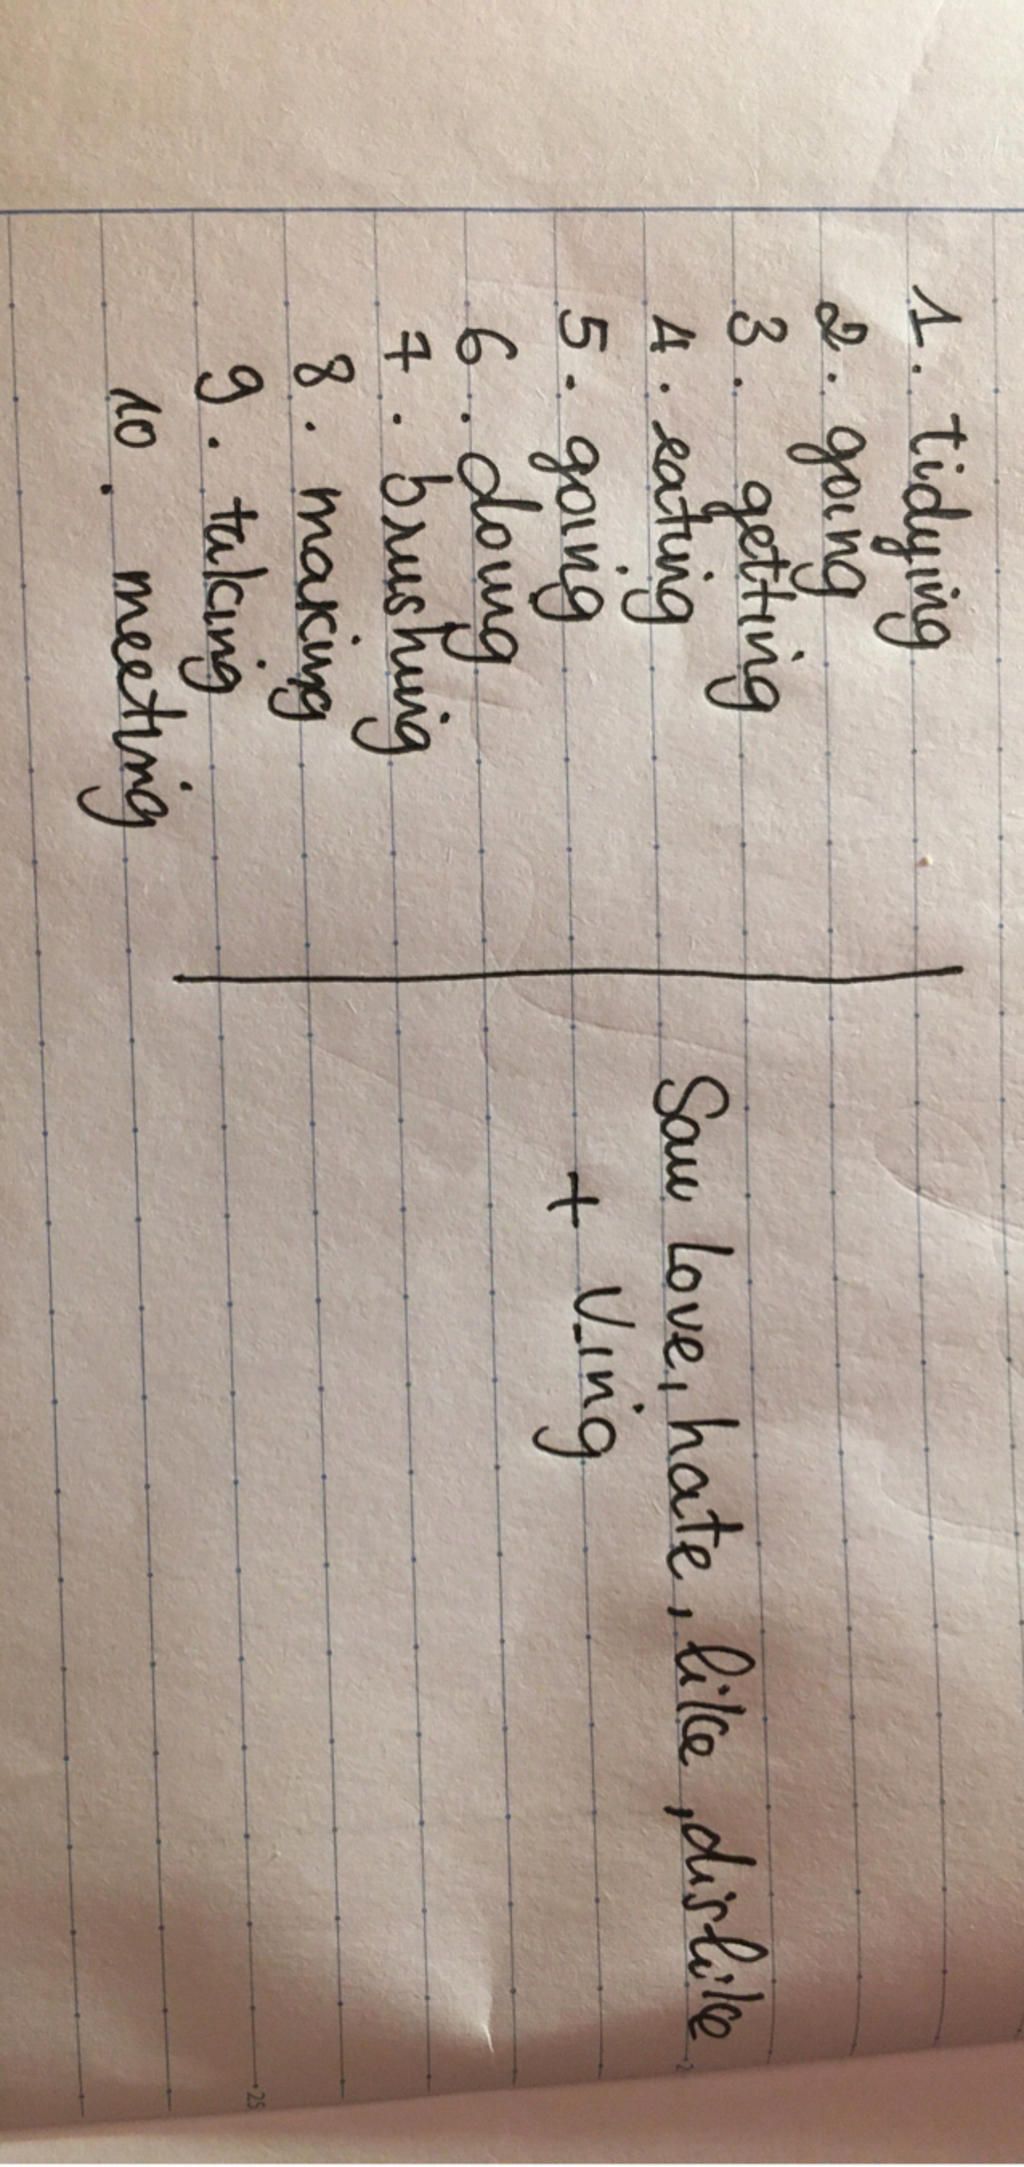 1. tidying
2. going
3. getting
4. eating
5. going
6. doing
7. brushing
8. making
9. taking
10. meeting
Sau love, hate, like, dislike
+ V_ing
25